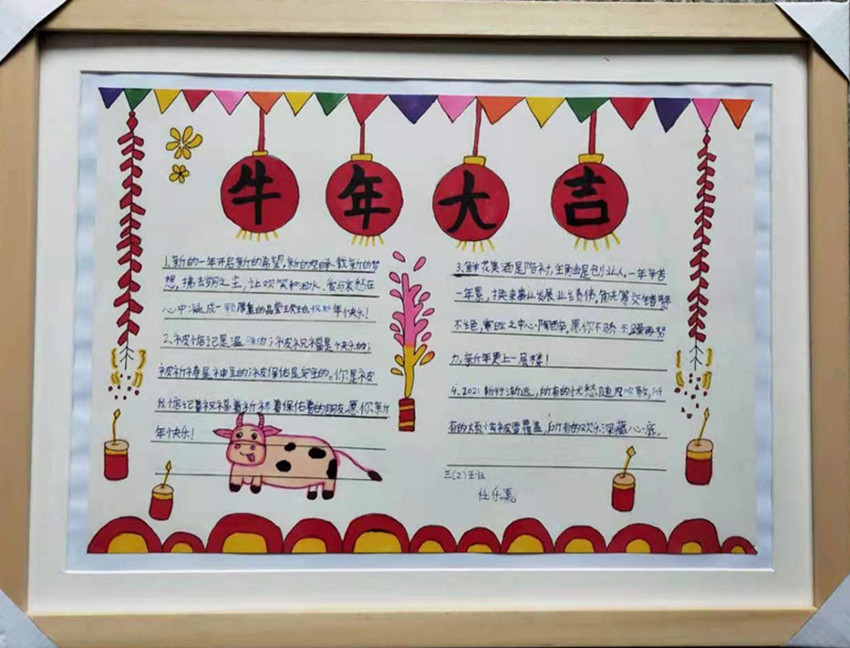 牛年大吉
1.新的一年开启新的希望,新的空白承载新的梦
想,拂去岁月之尘,让欢笑和泪水、爱与哀愁在
心中凝成一颗厚重的晶莹
年个快乐!
2.被惦记是温 的;被祝福是快乐的;
被祈祷是神圣的;被保佑是安全的。你是被
惦记着祝福着祈祷着保佑着的朋友,愿你新
年快乐!
3.鲜花美酒是陪衬,主角是创业人,一年辛苦
一年累,换来事业发展业
不绝,
力,新年更上一层楼!
4.2021渐行渐远,所有的忧愁随风吹散,所
有的烦恼被雪覆盖,所有的欢乐深藏心底。
三(2)王班
任乐嘉